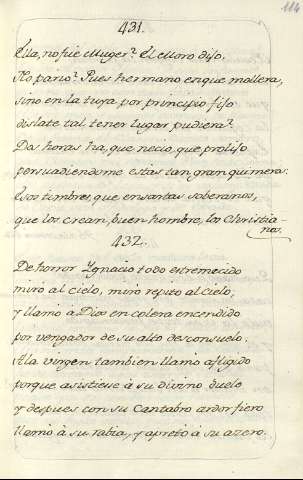 114
431.
Ella, no fue Muger? El Moro dijo.
No pario? Pues hermano en que mollera,
sino en la tuya por principio fijo
dislate tal tener lugar pudiera?
Dos horas ha, que necio, que prolijo
persuadiendome estas tan gran quimera:
Esos timbres, que ensartas soberanos,
que los crean, buen hombre, los Christia-
nos.
432.
De horror Ygnacio todo estremecido
miró al cielo, miró repito al cielo,
y llamó a Dios en colera encendido
por vengador de su alto desconsuelo.
A la virgen tambien llamó afligido
porque asistiese á su divino duelo
y despues con su Cantabro ardor fiero
llamó á su rabia, y apretó á su azero.